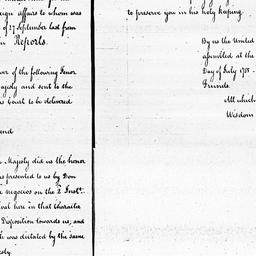 eign affairs to whom was
of 27 September last from
Reports.
er of the following Tenor
ajesty and sent to the
Court to be delivered
end
Majesty did us the honor
presented to us by Don
negocios on the 2 Inst.
val here in that character
Disposition towards us; and
h was dictated by the same
esty
to preserve you in his holy keeping.
By us the United
assembled at the
Day of July 178
Friends
All which
Wisdom